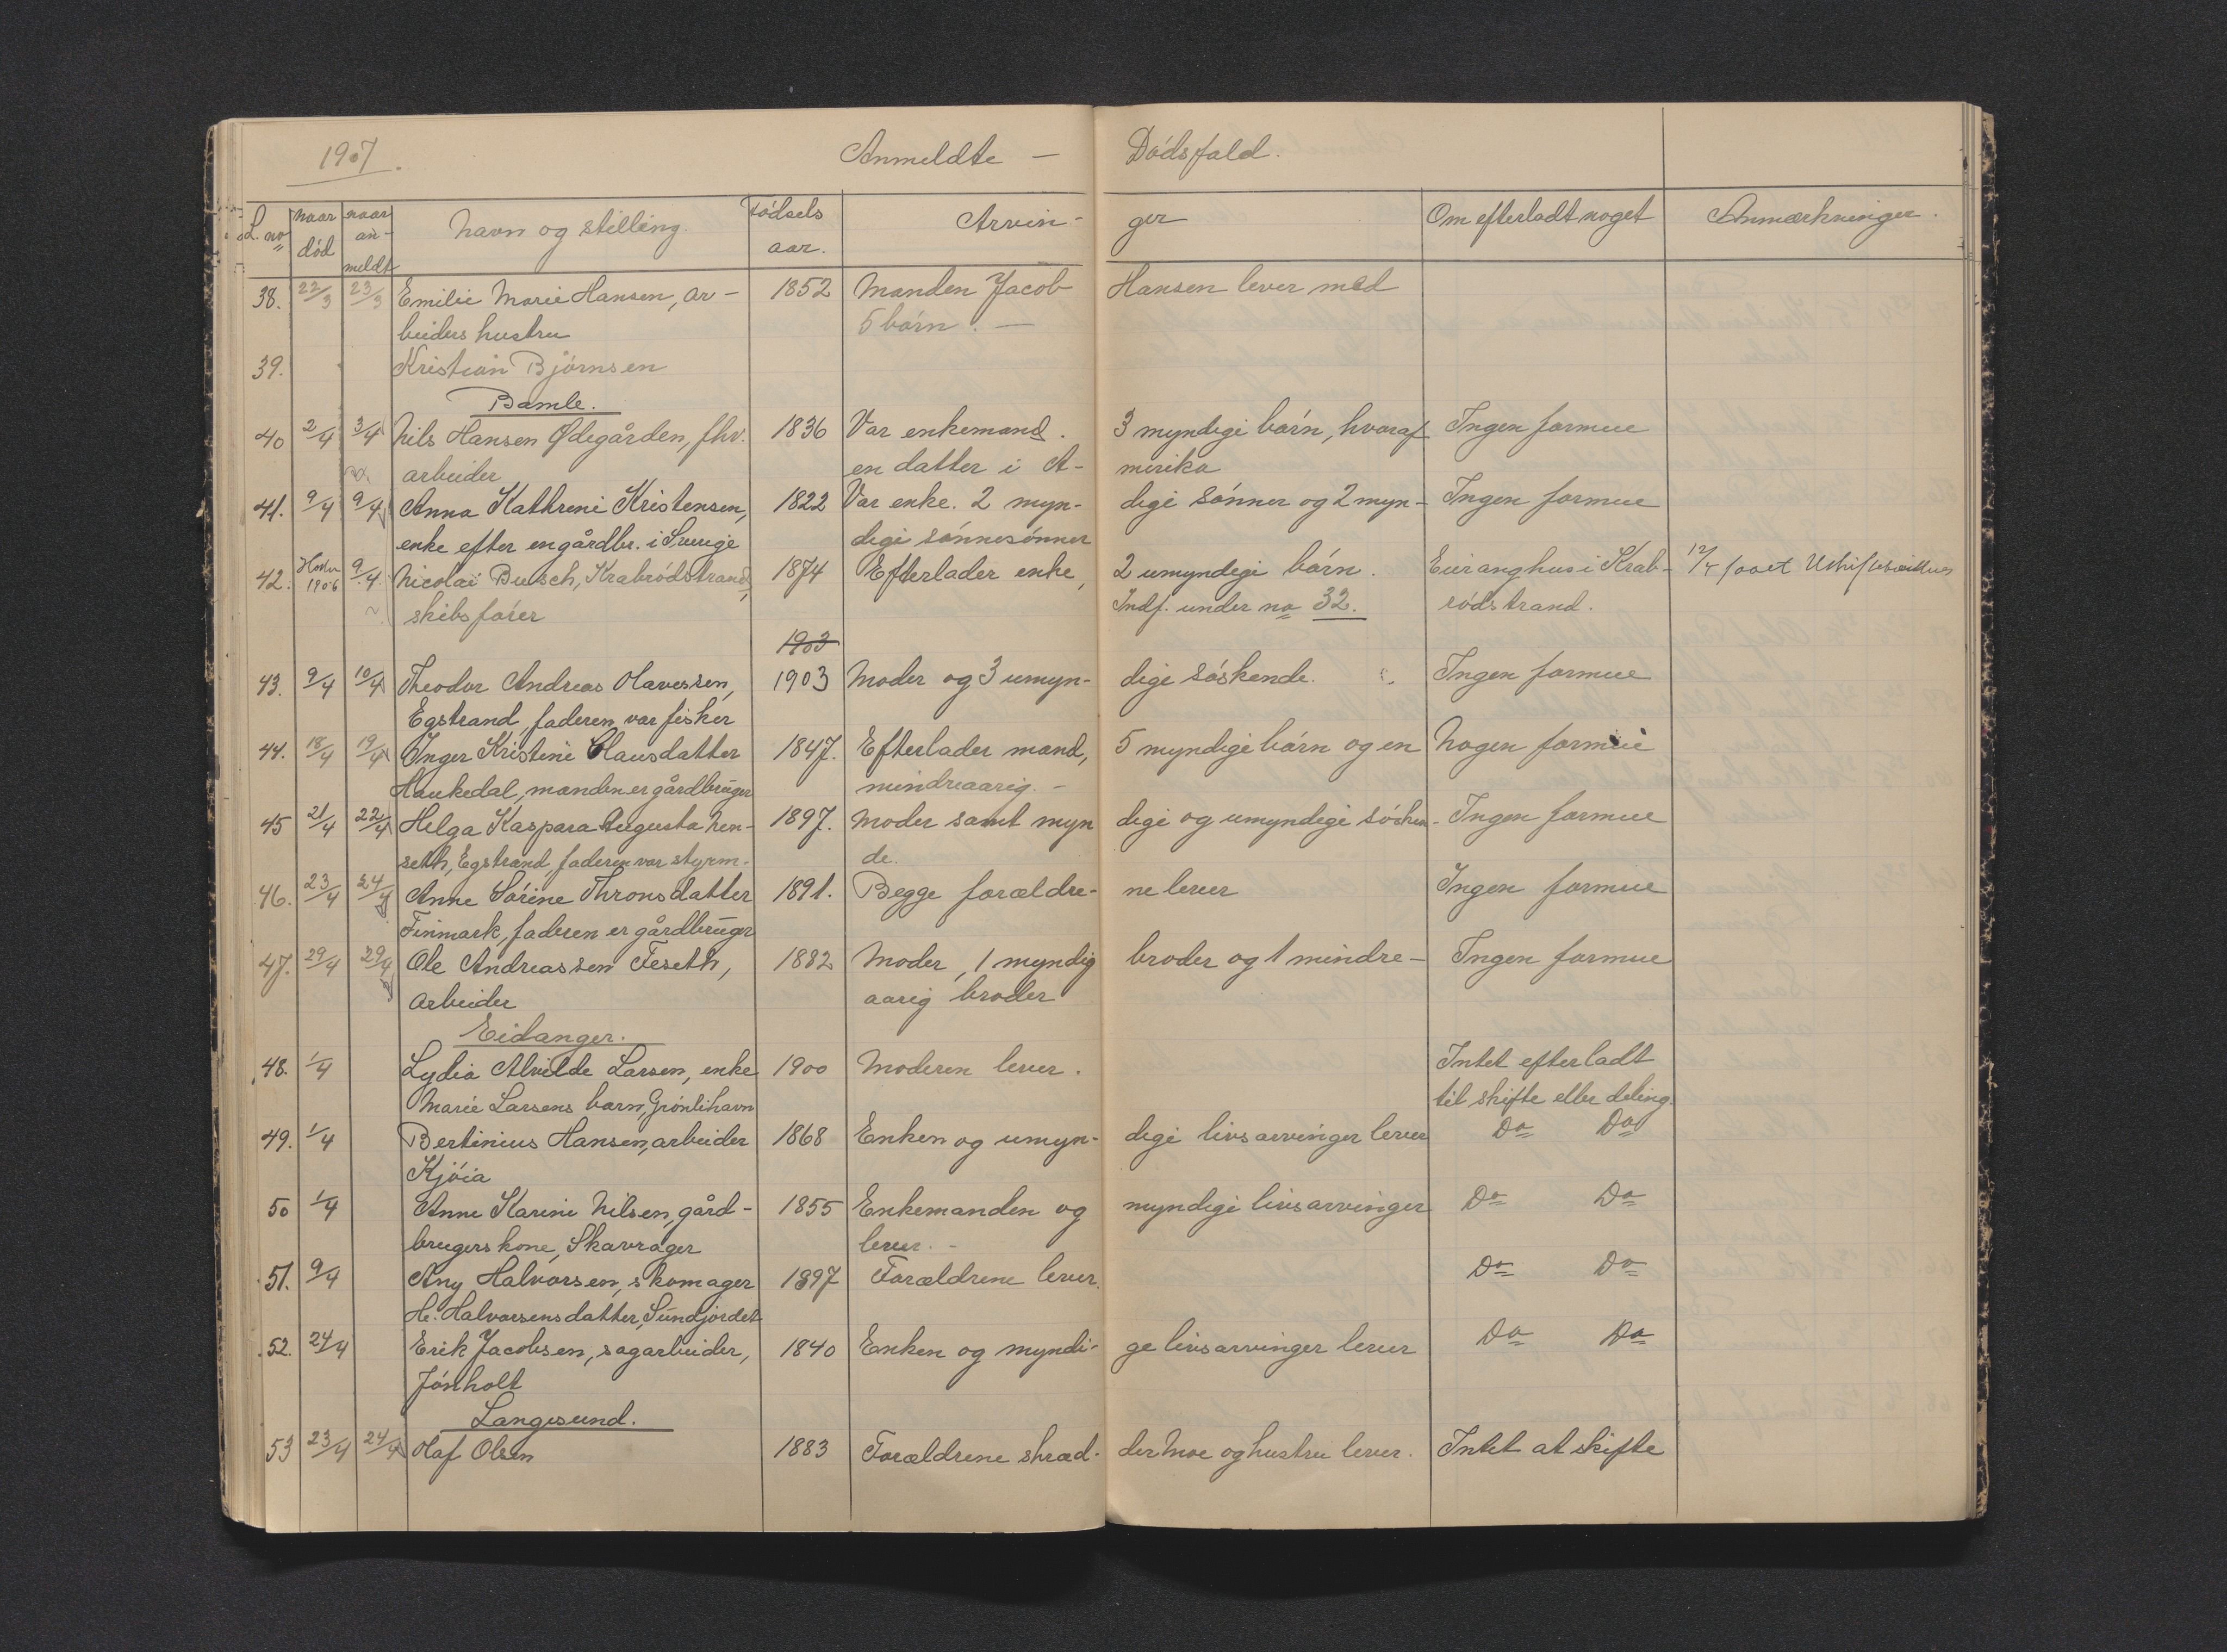 1907. Anmeldte — Dödsfald.
L. no naar död naar an- meldt Navn og stilling. Födsels aar. Arvin- ger Om efterladt noget Anmærkninger.
38. 22/3 23/3 Emilie Marie Hansen, ar- 1852 Manden Jacob Hansen lever med
beiders hustru 5 börn. —
39. Kristian Björnsen
Bamle.
40 2/4 3/4 Nils Hansen Ødegården, fhv. 1836 Var enkemand. 3 myndige börn, hvoraf Ingen formue
arbeider en datter i A- merika
41. 9/4 9/4 Anna Kathrine Kristensen, 1822 Var enke. 2 myn- dige sönner og 2 myn- Ingen formue
enke efter en gårdbr. i Sverige dige sönnesönner
42. Hösten 1906 9/4 Nicolai Busch, Krabrödstrand, 1874 Efterlader enke, 2 umyndige börn. Eier anghus i Krab- 12/4 faaet
skibsförer Indf. under no 32. rödstrand.
1903
43. 9/4 10/4 Theodor Andreas Olavessen, 1903 Moder og 3 umyn- dige söskende. Ingen formue
Egstrand, faderen var fisker
44. 18/4 19/4 Inger Kristine Clausdatter 1847. Efterlader mand, 5 myndige börn og en Nogen formue
Haukedal, manden er gårdbruger mindreaarig. —
45 21/4 22/4 Helga Kaspara Augusta Nen- 1897. Moder samt myn dige og umyndige sösken- Ingen formue
seth, Egstrand, faderen var styrm. de.
46. 23/4 24/4 Anne Sörine Thronsdatter 1891. Begge forældre- ne lever Ingen formue
Finmark, faderen er gårdbruger
47. 29/4 29/4 Ole Andreassen Feseth, 1882 Moder, 1 myndig broder og 1 mindre- Ingen formue
arbeider aarig broder
Eidanger.
48. 1/4 Lydia Alvilde Larsen, enke 1900 Moderen lever. Intet efterladt
Marie Larsens barn, Grönlihavn til skifte eller deling.
49. 1/4 Bertinius Hansen, arbeider 1868 Enken og umyn- dige livsarvinger lever Do Do
Kjöia
50 1/4 Anne Karine Nilsen, gård- 1855 Enkemanden og myndige livsarvinger Do Do
brugers kone, Skavrager lever. —
51. 9/4 Any Halvorsen, skomager 1897 Forældrene lever. Do Do
H. Halvorsens datter, Sundjordet
52. 24/4 Erik Jacobsen, sagarbeider, 1840 Enken og myndi- ge livsarvinger lever Do Do
Jönholt
Langesund.
53 23/4 24/4 Olaf Olsen 1883 Forældrene skræd- der Moe og hustru lever. Intet at skifte